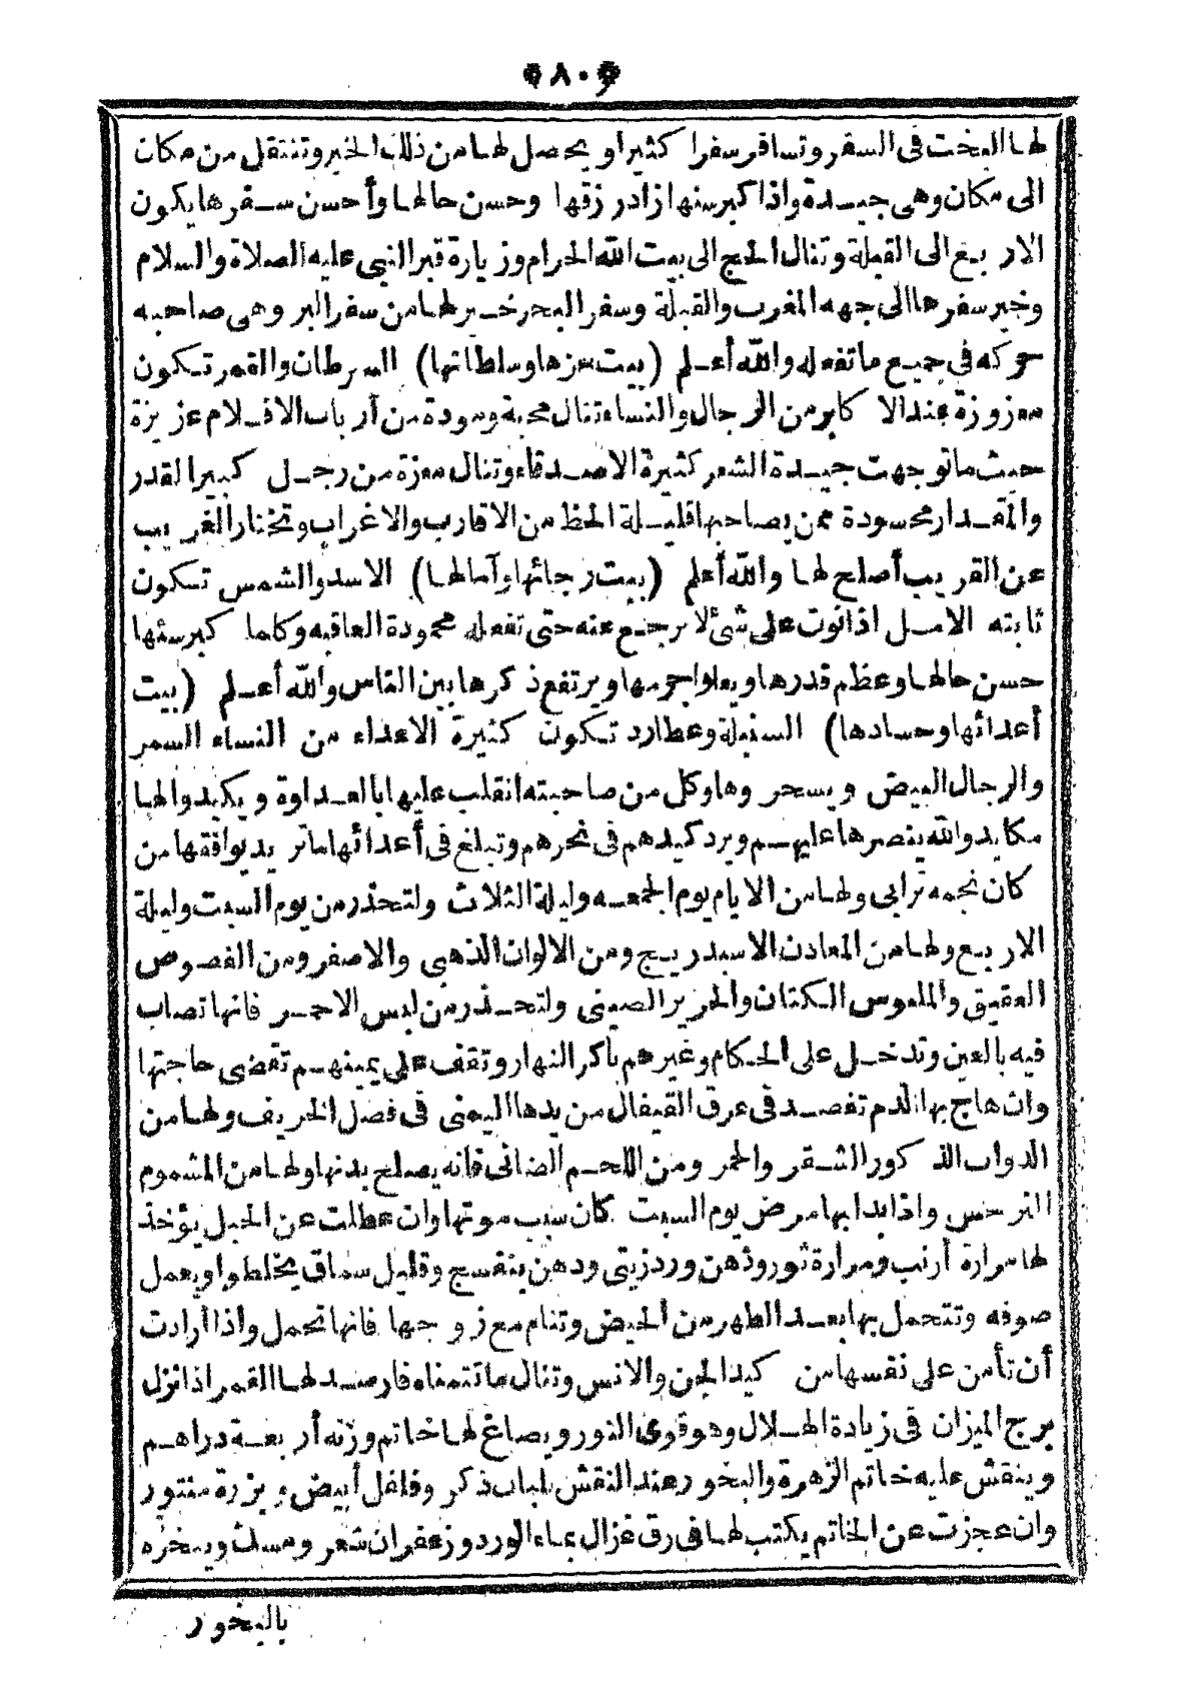 ﴿٨٠﴾
لها البخت فى السفر وتسافر سفرا كثيرا ويحصل لها من ذلك الخير وتنتقل من مكان
الى مكان وهى جيدة واذا كبر سنها زاد رزقها وحسن حالها وأحسن سفرها يكون
الاربع الى القبلة وتنال الحج الى بيت الله الحرام وزيارة قبر النبى عليه الصلاة والسلام
وخير سفرها الى جهه المغرب والقبلة وسفر البحر خير لها من سفر البر وهى صاحبه
حركه فى جميع ما تفعله والله أعلم (بيت عزها وسلطانها) السرطان والقمر تكون
معزوزة عند الاكابر من الرجال والنساء تنال محبة ومودة من أرباب الاقلام عزيزة
حيث ما توجهت جيدة الشعر كثيرة الاصدقاء وتنال معزة من رجل كبير القدر
والمقدار محسودة ممن يصاحبها قليلة الحظ من الاقارب والاغراب وتختار الغريب
عن القريب أصلح لها والله أعلم (بيت رجائها وآمالها) الاسد والشمس تكون
ثابته الامل اذا نوت على شئ لا ترجع عنه حتى تفعله محمودة العاقبه وكلما كبر سنها
حسن حالها وعظم قدرها ويعلو اسمها ويرتفع ذكرها بين الناس والله أعلم (بيت
أعدائها وحسادها) السنبلة وعطارد تكون كثيرة الاعداء من النساء السمر
والرجال البيض ويسحروها وكل من صاحبته انقلب عليها بالعداوة ويكيدوا لها
مكايد والله ينصرها عليهم ويرد كيدهم فى نحرهم وتبلغ فى أعدائها ما تريد يوافقها من
كان نجمه ترابى ولها من الايام يوم الجمعه وليلة الثلاث ولتحذر من يوم السبت وليلة
الاربع ولها من المعادن الاسبدريج ومن الالوان الذهبى والاصفر ومن الفصوص
العقيق والملبوس الكتان والحرير الصينى ولتحذر من لبس الاحمر فانها تصاب
فيه بالعين وتدخل على الحكام وغيرهم باكر النهار وتقف على يمينهم تقضى حاجتها
وان هاج بها الدم تفصد فى عرق القيفال من يدها اليمنى فى فصل الخريف ولها من
الدواب الذكور الشقر والحمر ومن اللحم الضانى فانه يصلح بدنها ولها من المشموم
النرجس واذا بدا بها مرض يوم السبت كان سبب موتها وان عطلت عن الحبل يؤخذ
لها مرارة أرنب ومرارة ثور ودهن ورد زيتى ودهن بنفسج وقليل سماق يخلطوا ويعمل
صوفه وتتحمل بها بعد الطهر من الحيض وتنام مع زوجها فانها تحمل واذا أرادت
أن تأمن على نفسها من كيد الجن والانس وتنال ما تتمناه فارصد لها القمر اذا نزل
برج الميزان فى زيادة الهلال وهو قوى النور ويصاغ لها خاتم وزنه أربعة دراهم
وينقش عليه خاتم الزهرة والبخور عند النقش بلبان ذكر وفلفل أبيض وبزرة منتور
وان عجزت عن الخاتم يكتب لها فى رق غزال بماء الورد وزعفران شعر ومسك ويبخره
بالبخور